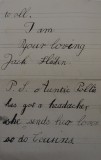 well.
I am
Your loving
Jack
P.S. Auntie Polla
has got a headache
she sends her love
so do